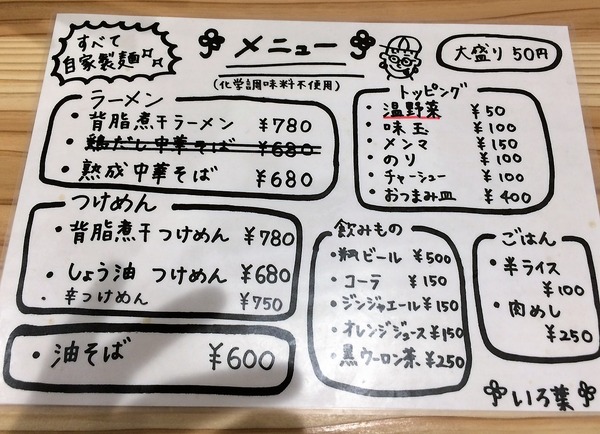 すべて
自家製麺
メニュー
(化学調味料不使用)
大盛り 50円
ラーメン
・背脂煮干ラーメン ¥780
・鶏だし中華そば ¥680
・熟成中華そば ¥680
つけめん
・背脂煮干つけめん ¥780
・しょう油 つけめん ¥680
・辛つけめん ¥750
・油そば ¥600
トッピング
・温野菜 ¥50
・味玉 ¥100
・メンマ ¥150
・のり ¥100
・チャーシュー ¥100
・おつまみ皿 ¥400
飲みもの
・瓶ビール ¥500
・コーラ ¥150
・ジンジャエール ¥150
・オレンジジュース ¥150
・黒ウーロン茶 ¥250
ごはん
・半ライス
¥100
・肉めし
¥250
いろ葉